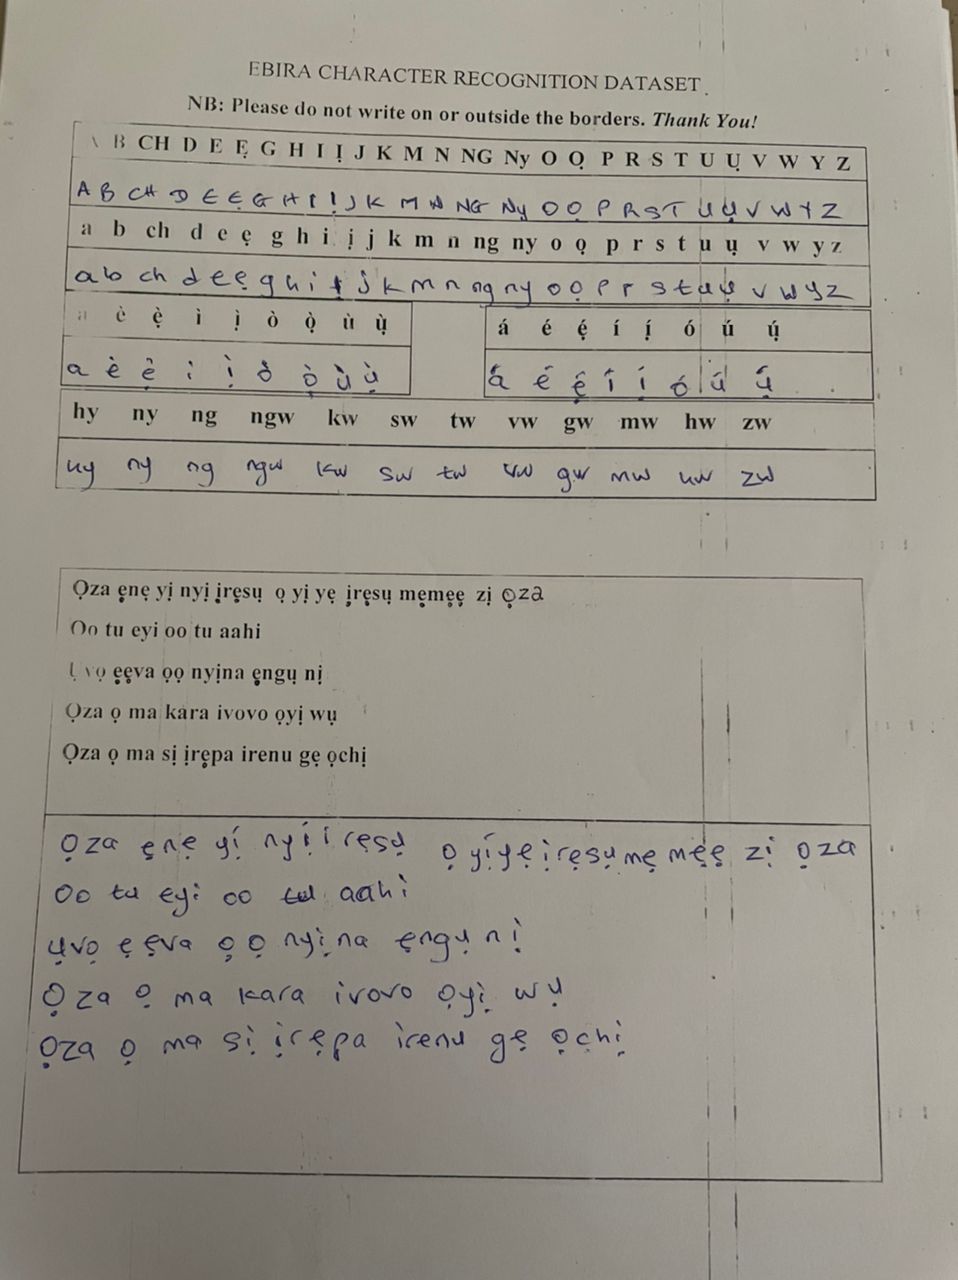 EBIRA CHARACTER RECOGNITION DATASET
NB: Please do not write on or outside the borders. Thank You!
A B CH D E Ẹ G H I Ị J K M N NG Ny O Ọ P R S T U Ụ V W Y Z
A B CH D E Ẹ G H I Ị J K M N NG Ny O Ọ P R S T U Ụ V W Y Z
a b ch d e ẹ g h i ị j k m n ng ny o ọ p r s t u ụ v w y z
a b ch d e ẹ g h i ị j k m n ng ny o ọ p r s t u ụ v w y z
a è ẹ̀ ì ị̀ ò ọ̀ ù ụ̀ á é ẹ́ í ị́ ó ú ụ́
a è ẹ̀ ì ị̀ ò ọ̀ ù ụ̀ á é ẹ́ í ị́ ó ú ụ́
hy ny ng ngw kw sw tw vw gw mw hw zw
hy ny ng ngw kw sw tw vw gw mw hw zw
Ọza ẹnẹ yị nyị ịrẹsụ ọ yị yẹ ịrẹsụ mẹmẹẹ zị ọza
Oo tu eyi oo tu aahi
Ị vọ ẹẹva ọọ nyịna ẹngụ nị
Ọza ọ ma kara ivovo ọyị wụ
Ọza ọ ma sị ịrẹpa irenu gẹ ọchị
Ọza ẹnẹ yị́ nyị́ ịrẹsụ ọ yị́yẹ ịrẹsụ mẹ mẹẹ zị ọza
Oo tu eyi oo tu aahi
Ụvọ ẹ ẹva ọ ọ nyịna ẹngụ nị
Ọza ọ ma kara ivovo ọyị wụ
Ọza ọ ma sị ịrẹpa irenu gẹ ọchị